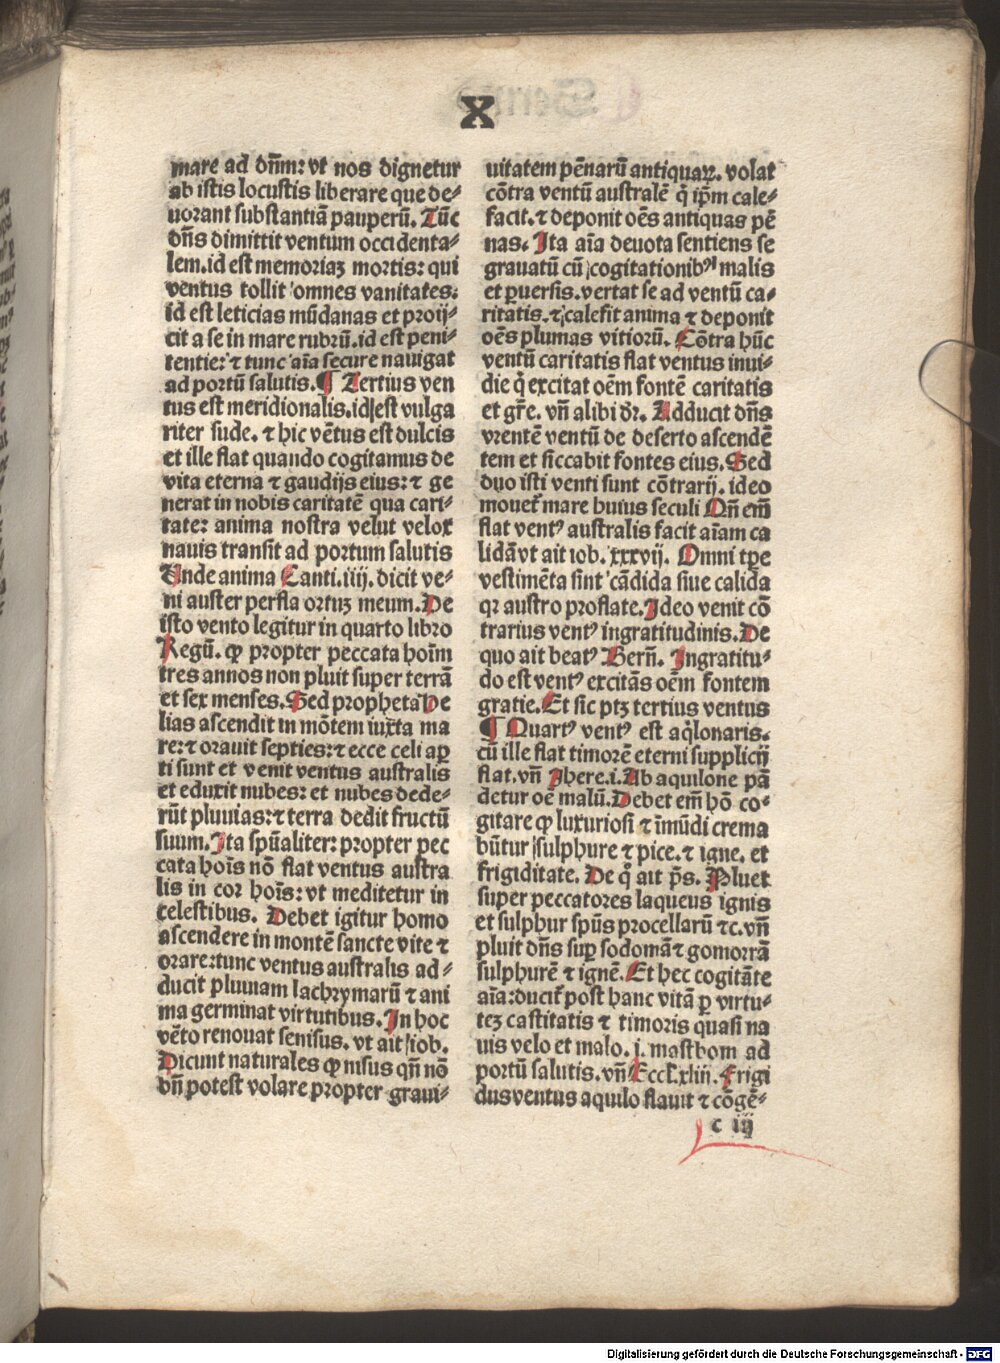 X
mare ad dn̄m: vt nos dignetur
ab istis locustis liberare que de⸗
uorant substantiā pauperū. Tūc
dn̄s dimittit ventum occidenta⸗
lem. id est memoriaꝫ mortis: qui
ventus tollit omnes vanitates:
id est leticias mūdanas et proij⸗
cit a se in mare rubrū. id est peni⸗
tentie: ⁊ tunc aīa secure nauigat
ad portū salutis. ¶ Tertius ven
tus est meridionalis. id est vulga
riter sude. ⁊ hic vētus est dulcis
et ille flat quando cogitamus de
vita eterna ⁊ gaudijs eius: ⁊ ge
nerat in nobis caritatē qua cari⸗
tate: anima nostra velut velox
nauis transit ad portum salutis
Unde anima Canti. iiij. dicit ve⸗
ni auster perfla ortuꝫ meum. De
isto vento legitur in quarto libro
Regū. ꝙ propter peccata hoīm
tres annos non pluit super terrā
et sex menses. Sed propheta He
lias ascendit in mōtem iuxta ma
re: ⁊ orauit septies: ⁊ ecce celi aꝑ
ti sunt et venit ventus australis
et eduxit nubes: et nubes dede⸗
rūt pluuias: ⁊ terra dedit fructū
suum. Ita spūaliter: propter pec
cata hoīs nō flat ventus austra
lis in cor hoīs: vt meditetur in
celestibus. Debet igitur homo
ascendere in montē sancte vite ⁊
orare: tunc ventus australis ad⸗
ducit pluuiam lachrymarū ⁊ ani
ma germinat virtutibus. In hoc
vēto renouat senisus. vt ait iob.
Dicunt naturales ꝙ nisus qn̄ nō
bn̄ potest volare propter graui⸗
uitatem pēnarū antiquaꝝ. volat
cōtra ventū australē q̇ ip̄m cale⸗
facit. ⁊ deponit oēs antiquas pē
nas. Ita aīa deuota sentiens se
grauatū cū cogitationibꝰ malis
et ꝑuersis. vertat se ad ventū ca⸗
ritatis. ⁊ calefit anima ⁊ deponit
oēs plumas vitiorū. Cōtra hūc
ventū caritatis flat ventus inui⸗
die q̇ excitat oēm fontē caritatis
et gr̄e. vn̄ alibi dr̄. Adducit dn̄s
vrentē ventū de deserto ascendē
tem et siccabit fontes eius. Sed
duo isti venti sunt cōtrarij. ideo
mouet̄ mare huius seculi Qn̄ em̄
flat ventꝰ australis facit aīam ca
lidā vt ait iob. xxxvij. Omni tꝑe
vestimēta sint cādida siue calida
qꝛ austro proflate. Ideo venit cō
trarius ventꝰ ingratitudinis. De
quo ait beatꝰ Bern̄. Ingratitu⸗
do est ventꝰ excitās oēm fontem
gratie. Et sic ptꝫ tertius ventus
¶ Quartꝰ ventꝰ est aq̇lonaris.
cū ille flat timorē eterni supplicij
flat. vn̄ Jhere. i. Ab aquilone pā
detur oē malū. Debet em̄ hō co⸗
gitare ꝙ luxuriosi ⁊ īmūdi crema
būtur sulphure ⁊ pice. ⁊ igne. et
frigiditate. De q̊ ait ps̄. Pluet
super peccatores laqueus ignis
et sulphur spūs procellarū ⁊c. vn̄
pluit dn̄s suꝑ sodomā ⁊ gomorrā
sulphurē ⁊ ignē. Et hec cogitāte
aīa: ducit̄ post hanc vitā ꝑ virtu⸗
teꝫ castitatis ⁊ timoris quasi na
uis velo et malo. i. mastbom ad
portū salutis. vn̄ Eccl. xliij. Frigi
dus ventus aquilo flauit ⁊ cōgē⸗
c iij
Digitalisierung gefördert durch die Deutsche Forschungsgemeinschaft - DFG